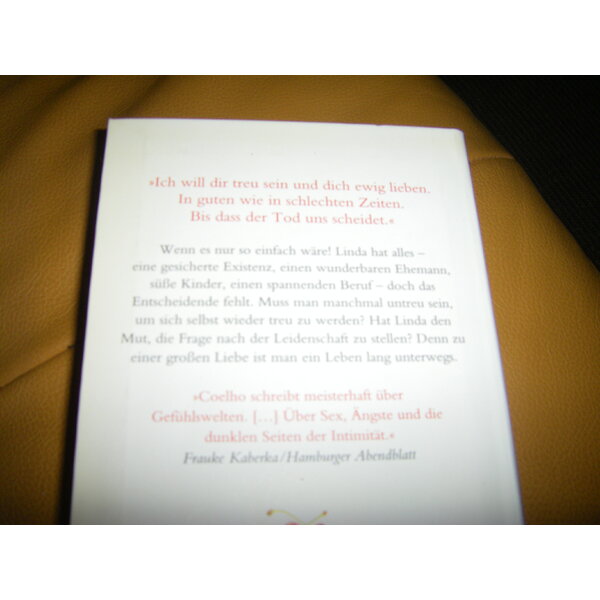 »Ich will dir treu sein und dich ewig lieben.
In guten wie in schlechten Zeiten.
Bis dass der Tod uns scheidet.«
Wenn es nur so einfach wäre! Linda hat alles –
eine gesicherte Existenz, einen wunderbaren Ehemann,
süße Kinder, einen spannenden Beruf – doch das
Entscheidende fehlt. Muss man manchmal untreu sein,
um sich selbst wieder treu zu werden? Hat Linda den
Mut, die Frage nach der Leidenschaft zu stellen? Denn zu
einer großen Liebe ist man ein Leben lang unterwegs.
»Coelho schreibt meisterhaft über
Gefühlswelten. [...] Über Sex, Ängste und die
dunklen Seiten der Intimität.«
Frauke Kaberka/Hamburger Abendblatt